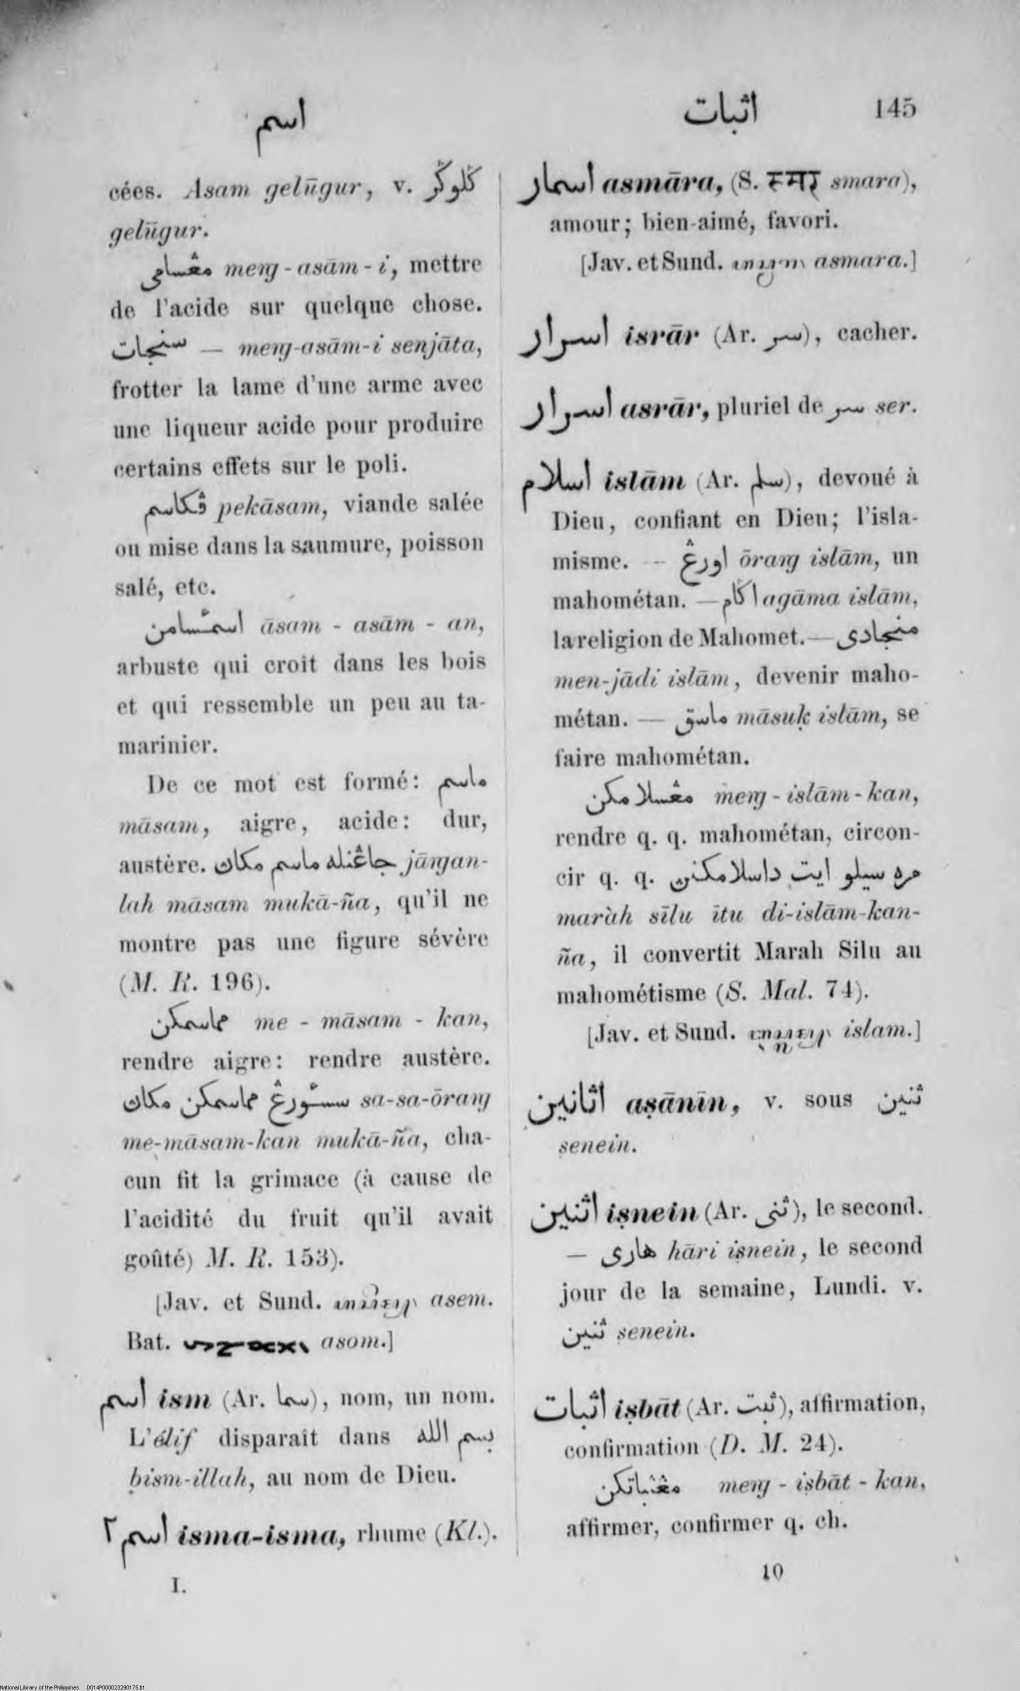 اسم
اثبات 145
cées. Asam gelūgur, v. ݢلوݢر
gelūgur.
مڠسامي meng-asām-i, mettre
de l'acide sur quelque chose.
سنجات — meng-asām-i senjāta,
frotter la lame d'une arme avec
une liqueur acide pour produire
certains effets sur le poli.
ڤكاسم pekāsam, viande salée
ou mise dans la saumure, poisson
salé, etc.
āsam - asām - an,
arbuste qui croit dans les bois
et qui ressemble un peu au ta-
marinier.
De ce mot est formé: ماسم
māsam, aigre, acide: dur,
austère. جاڠنله ماسم مكاڽ jāngan-
lah māsam mukā-ña, qu'il ne
montre pas une figure sévère
(M. R. 196).
مماسمكن me - māsam - kan,
rendre aigre: rendre austère.
مماسمكن مكاڽ sa-sa-ōrang
me-māsam-kan mukā-ña, cha-
cun fit la grimace (à cause de
l'acidité du fruit qu'il avait
goûté) M. R. 153).
[Jav. et Sund. asem.
Bat. asom.]
اسم ism (Ar. سما), nom, un nom.
L'élif disparaît dans بسم الله
bism-illah, au nom de Dieu.
اسم ٢ isma-isma, rhume (Kl.).
I.
اسمار asmāra, (S. स्मर smara),
amour; bien-aimé, favori.
[Jav. et Sund. asmara.]
اسرار isrār (Ar. سر), cacher.
اسرار asrār, pluriel de سر ser.
اسلام islām (Ar. سلم), devoué à
Dieu, confiant en Dieu; l'isla-
misme. — اورڠ ōrang islām, un
mahométan. — اݢام agāma islām,
la religion de Mahomet. — منجادي
men-jādi islām, devenir maho-
métan. — ماسق māsuḳ islām, se
faire mahométan.
مڠسلامكن meng-islām-kan,
rendre q. q. mahométan, circon-
cir q. q. مره سيلو ايت داسلامكنڽ
maràh sīlu ītu di-islām-kan-
ña, il convertit Marah Silu au
mahométisme (S. Mal. 74).
[Jav. et Sund. islam.]
اثانين aṣānīn, v. sous ثنين
ṣenein.
اثنين iṣnein (Ar. ثنى), le second.
— هاري hāri iṣnein, le second
jour de la semaine, Lundi. v.
ثنين ṣenein.
اثبات iṣbāt (Ar. ثبت), affirmation,
confirmation (D. M. 24).
مڠثباتكن meng - iṣbāt - kan,
affirmer, confirmer q. ch.
10
National Library of the Philippines